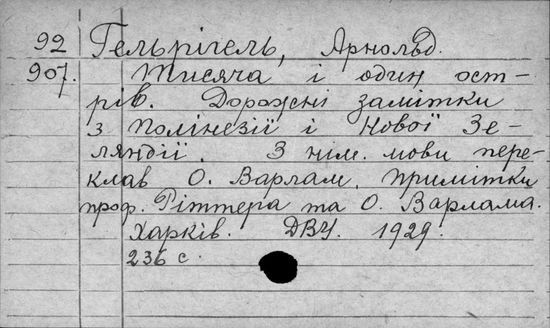 92 Гельрігель, Арнольд.
907. Тисяча і один ост-
рів. Дорожні замітки
з Полінезії і Нової Зе-
ляндії. З нім. мови пере-
клав О. Варлам. Примітки
проф. Ріттера та О. Варлама.
Харків. ДВУ. 1929.
236 с.